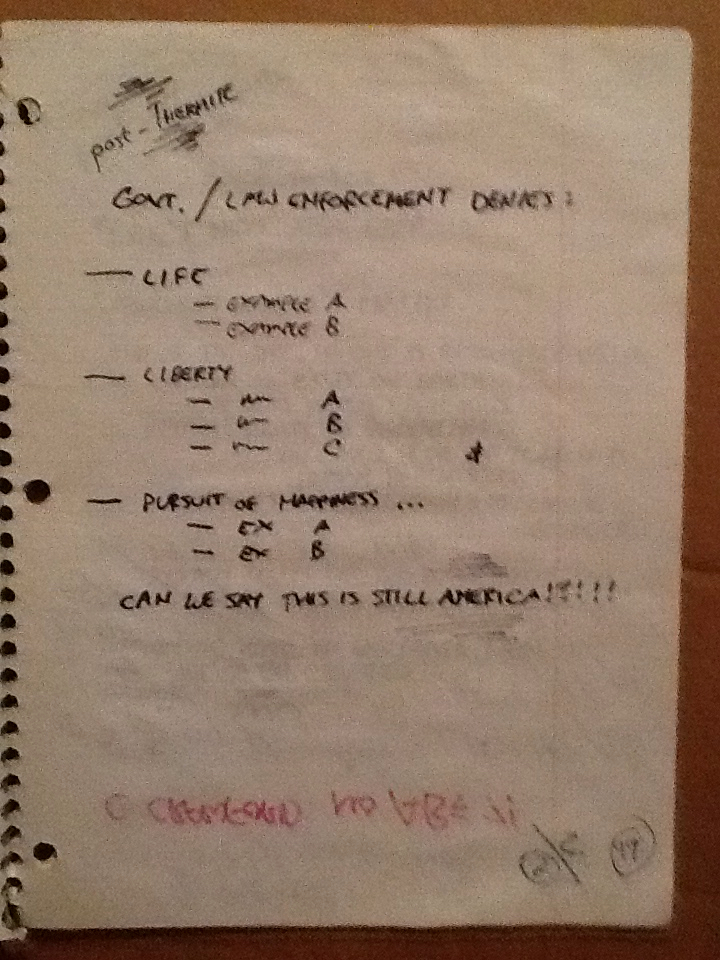 post-THERMITE
GOVT. / LAW ENFORCEMENT DENIES:
— LIFE
— EXAMPLE A
— EXAMPLE B
— LIBERTY
— A
— B
— C
— PURSUIT OF HAPPINESS ...
— EX A
— EX B
CAN WE SAY THIS IS STILL AMERICA!?!!!